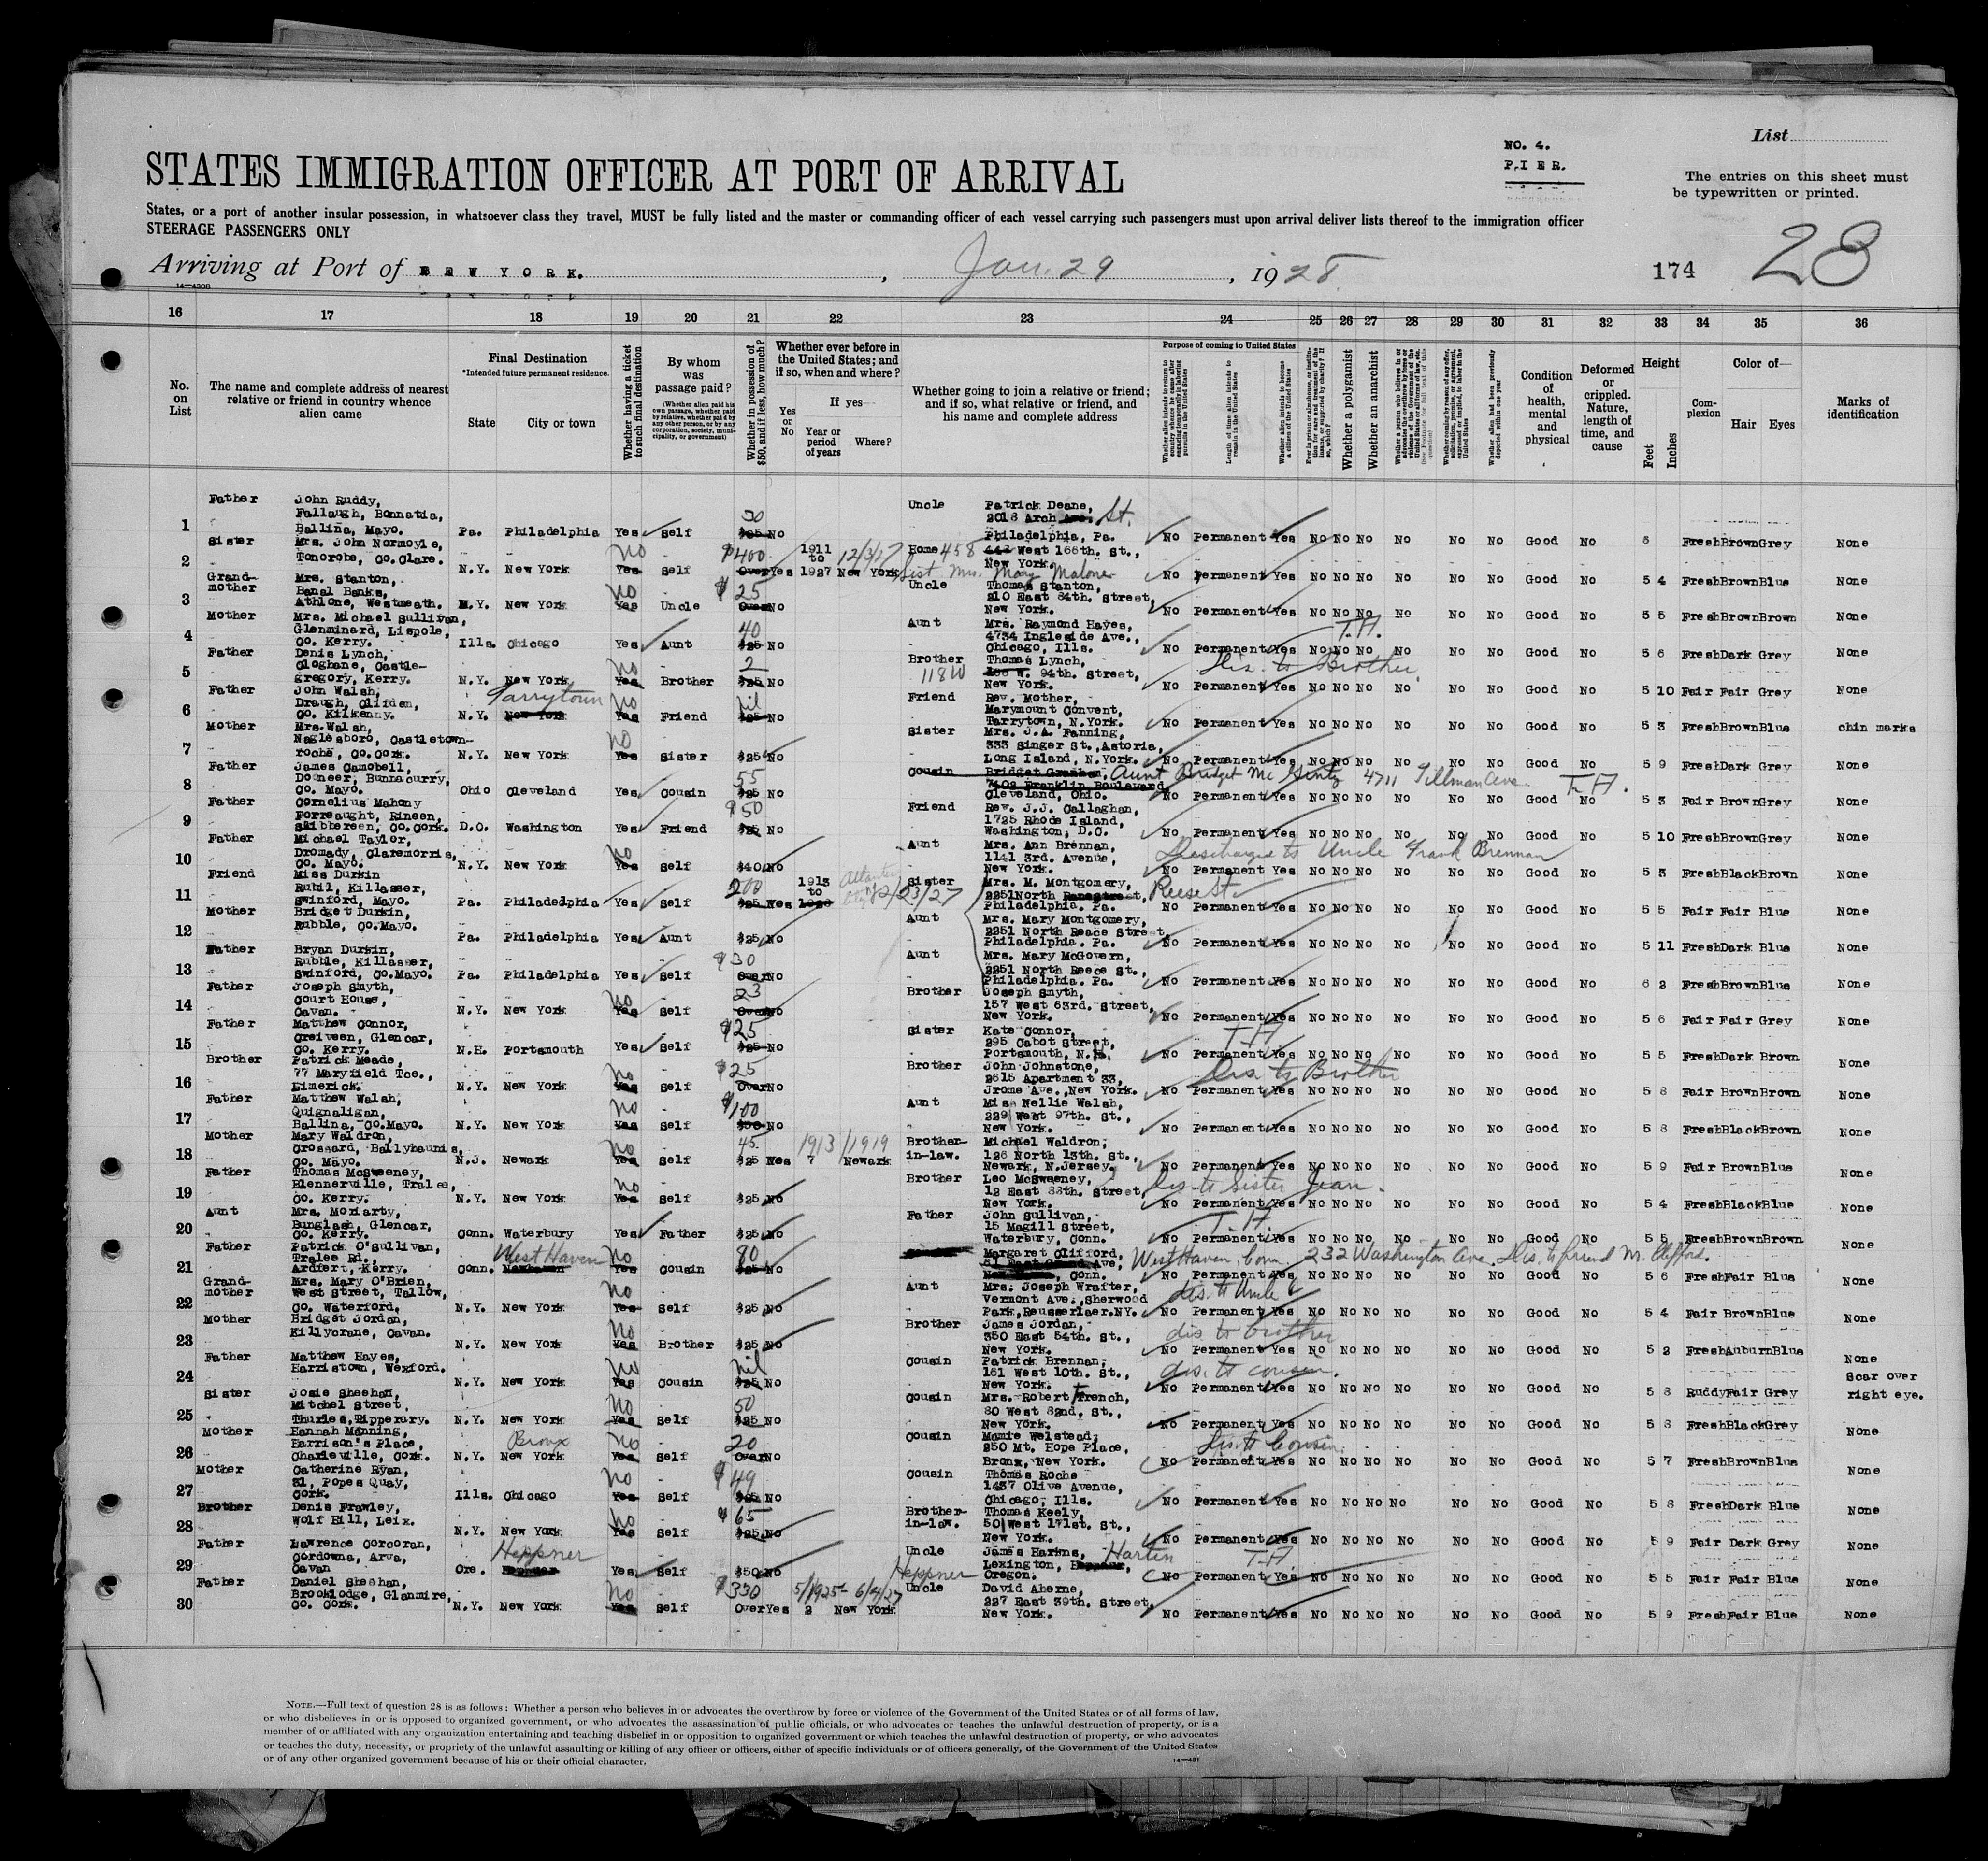 List
NO. 4.
P.I E R.
The entries on this sheet must
be typewritten or printed.
STATES IMMIGRATION OFFICER AT PORT OF ARRIVAL
States, or a port of another insular possession, in whatsoever class they travel, MUST be fully listed and the master or commanding officer of each vessel carrying such passengers must upon arrival deliver lists thereof to the immigration officer
STEERAGE PASSENGERS ONLY
Arriving at Port of NEW YORK. , Jan. 29 , 1928 174 28
16 17 18 19 20 21 22 23 24 25 26 27 28 29 30 31 32 33 34 35 36
No. on List
The name and complete address of nearest relative or friend in country whence alien came
Final Destination
*Intended future permanent residence.
State City or town
Whether having a ticket to such final destination
By whom was passage paid?
(Whether alien paid his own passage, whether paid by relative, whether paid by any other person, or by any corporation, society, municipality, or government)
Whether in possession of $50, and if less, how much?
Whether ever before in the United States; and if so, when and where?
Yes or No
If yes—
Year or period of years Where?
Whether going to join a relative or friend; and if so, what relative or friend, and his name and complete address
Purpose of coming to United States
Length of time alien intends to remain in the United States
Whether alien intends to become a citizen of the United States
Whether a polygamist
Whether an anarchist
Condition of health, mental and physical
Deformed or crippled. Nature, length of time, and cause
Height
Feet Inches
Complexion
Color of—
Hair Eyes
Marks of identification
1 Father John Ruddy, Fallaugh, Bonnatia, Ballina, Mayo. Pa. Philadelphia Yes Self 30 $25 No Uncle Patrick Deane, 2018 Arch Ave. St. Philadelphia, Pa. No Permanent Yes No No No No No No Good No 6 Fresh Brown Grey None
2 Sister Mrs. John Normoyle, Tonorobe, Co.Clare. N.Y. New York No Yes Self $400 Over Yes 1911 to 1927 12/3/27 New York Home 458 West 166th. St., New York. Sist Mrs. Mary Malone No Permanent Yes No No No No No No Good No 5 4 Fresh Brown Blue None
3 Grand-mother Mrs. Stanton, Banal Banks, Athlone, Westmeath. N.Y. New York No Yes Uncle $25 Over No Uncle Thomas Stanton, 210 East 84th. Street, New York. No Permanent Yes No No No No No No Good No 5 5 Fresh Brown Brown None
4 Mother Mrs. Michael Sullivan, Glenminard, Lispole, Co. Kerry. Ills. Chicago Yes Aunt 40 $25 No Aunt Mrs. Raymond Hayes, 4734 Ingleside Ave., Chicago, Ills. T.A. No Permanent Yes No No No No No No Good No 5 6 Fresh Dark Grey None
5 Father Denis Lynch, Cloghane, Castle-gregory, Kerry. N.Y. New York No Yes Brother 2 $25 No Brother Thomas Lynch, 118 W W. 94th. Street, New York. Dis. to Brother. No Permanent Yes No No No No No No Good No 5 10 Fair Fair Grey None
6 Father John Walsh, Draugh, Clifden, Co. Kilkenny. N.Y. Tarrytown New York No Yes Friend nil $25 No Friend Rev. Mother, Marymount Convent, Tarrytown, N.York. No Permanent Yes No No No No No No Good No 5 3 Fresh Brown Blue chin marks
7 Mother Mrs.Walsh, Naglesboro, Castletown-roche, Co.Cork. N.Y. New York No Yes Sister $25 No Sister Mrs. J.A. Fanning, 333 Singer St.,Astoria, Long Island, N.York. No Permanent Yes No No No No No No Good No 5 9 Fresh Dark Grey None
8 Father James Camobell, Dooneer, Bunnacurry, Co. Mayo. Ohio Cleveland Yes Cousin 55 $25 No Cousin Bridget Graham, 7409 Franklin Boulevard, Cleveland, Ohio. Aunt Bridget Mc Ginty 4711 Tillman Ave. T.A. No Permanent Yes No No No No No No Good No 5 3 Fair Brown Grey None
9 Father Cornelius Mahony Forreaught, Rineen, Skibbereen, Co.Cork. D.C. Washington Yes Friend $50 $25 No Friend Rev. J.J. Callaghan, 1725 Rhode Island, Washington, D.C. No Permanent Yes No No No No No No Good No 5 10 Fresh Brown Grey None
10 Father Michael Taylor, Dromady, Claremorris, Co. Mayo. N.Y. New York No Yes Self $40 No Aunt Mrs. Ann Brennan, 1141 3rd. Avenue, New York. Discharged to Uncle Frank Brennan No Permanent Yes No No No No No No Good No 5 3 Fresh Black Brown None
11 Friend Miss Durkin Rubil, Killasser, Swinford, Mayo. Pa. Philadelphia Yes Self 200 $25 Yes 1913 to Atlantic City 12/23/27 Sister Mrs. M. Montgomery, 2251 North Street, Reese St. Philadelphia. Pa. No Permanent Yes No No No No No No Good No 5 5 Fair Fair Blue None
12 Mother Bridget Durkin, Rubble, Co.Mayo. Pa. Philadelphia Yes Aunt $25 No Aunt Mrs. Mary Montgomery, 2251 North Reace Street, Philadelphia. Pa. No Permanent Yes No No No No No No Good No 5 11 Fresh Dark Blue None
13 Father Bryan Durkin, Rubble, Killasser, Swinford, Co.Mayo. Pa. Philadelphia Yes Self $30 Over No Aunt Mrs. Mary McGovern, 2251 North Reece St., Philadelphia. Pa. No Permanent Yes No No No No No No Good No 6 2 Fresh Brown Blue None
14 Father Joseph Smyth, Court House, Cavan. N.Y. New York No Yes Self 23 Over No Brother Joseph Smyth, 157 West 63rd. Street, New York. No Permanent Yes No No No No No No Good No 5 6 Fair Fair Grey None
15 Father Matthew Connor, Creiveen, Glencar, Co. Kerry. N.H. Portsmouth Yes Self $25 $25 No Sister Kate Connor, 295 Cabot Street, Portsmouth, N.H. T.A. No Permanent Yes No No No No No No Good No 5 5 Fresh Dark Brown None
16 Brother Patrick Meade, 77 Maryfield Tce., Limerick. N.Y. New York No Yes Self $25 Over No Brother John Johnstone, 2615 Apartment 33, Jrome Ave.,New York. Dis. to Brother No Permanent Yes No No No No No No Good No 5 8 Fair Brown Brown None
17 Father Matthew Walsh, Quignaligan, Ballina, Co.Mayo. N.Y. New York No Yes Self $100 No Aunt Miss Nellie Walsh, 229 West 97th. St., New York. No Permanent Yes No No No No No No Good No 5 8 Fresh Black Brown None
18 Mother Mary Waldron, Crossard, Ballyhaunis, Co. Mayo. N.J. Newark No Yes Self 45 $25 Yes 1913/1919 7 Newark Brother-in-law. Michael Waldron, 126 North 13th. St., Newark, N.Jersey. No Permanent Yes No No No No No No Good No 5 9 Fair Brown Blue None
19 Father Thomas McSweeney, Blennerville, Tralee, Co. Kerry. N.Y. New York No Yes Self $25 No Brother Leo McSweeney, 12 East 88th. Street, New York. Dis. to Sister Jean. No Permanent Yes No No No No No No Good No 5 4 Fresh Black Blue None
20 Aunt Mrs. Moriarty, Bunglash, Glencar, Co. Kerry. Conn. Waterbury Yes Father $25 No Father John Sullivan, 15 Magill Street, Waterbury, Conn. T.A. No Permanent Yes No No No No No No Good No 5 5 Fresh Brown Brown None
21 Father Patrick O'Sullivan, Tralee Rd., Ardfert, Kerry. Conn. West Haven No Yes Cousin 80 $25 No Margaret Clifford, Ave, Conn. West Haven, Conn. 232 Washington Ave. Dis. to friend M. Clifford. No Permanent Yes No No No No No No Good No 5 6 Fresh Fair Blue None
22 Grand-mother Mrs. Mary O'Brien, West Street, Tallow, Co. Waterford. N.Y. New York No Yes Self $25 No Aunt Mrs. Joseph Wrafter, Vermont Ave.,Sherwood Park,Reusserlaer.NY. dis. to Uncle No Permanent Yes No No No No No No Good No 5 4 Fair Brown Blue None
23 Mother Bridget Jordan, Killycrane, Cavan. N.Y. New York No Yes Brother $25 No Brother James Jordan, 350 East 54th. St., New York. dis to brother No Permanent Yes No No No No No No Good No 5 2 Fresh Auburn Blue None
24 Father Matthew Hayes, Harristown, Wexford. N.Y. New York No Yes Cousin nil $25 No Cousin Patrick Brennan, 161 West 10th. St., New York. dis. to cousin. No Permanent Yes No No No No No No Good No 5 8 Ruddy Fair Grey Scar over right eye.
25 Sister Josie Sheehan, Mitchel Street, Thurles,Tipperary. N.Y. New York No Yes Self 50 $25 No Cousin Mrs. Robert French, 30 West 82nd. St., New York. No Permanent Yes No No No No No No Good No 5 8 Fresh Black Grey None
26 Mother Hannah Manning, Harrison's Place, Charleville, Cork. N.Y. Bronx New York No Yes Self 20 Over No Cousin Mamie Welstead, 250 Mt. Hope Place, Bronx, New York. Dis. to Cousin. No Permanent Yes No No No No No No Good No 5 7 Fresh Brown Blue None
27 Mother Catherine Ryan, 31, Popes Quay, Cork. Ills. Chicago No Yes Self $49 No Cousin Thomas Roche 1437 Olive Avenue, Chicago, Ills. No Permanent Yes No No No No No No Good No 5 8 Fresh Dark Blue None
28 Brother Denis Frawley, Wolf Hill, Leix. N.Y. New York No Yes Self $65 $25 No Brother-in-law. Thomas Keely, 50 West 171st. St., New York. No Permanent Yes No No No No No No Good No 5 9 Fair Dark Grey None
29 Father Lawrence Corcoran, Cordowna, Arva, Cavan Ore. Heppner Yes Self $50 No Uncle James Harkns, Hartin Lexington, Heppner Oregon. T.A. No Permanent Yes No No No No No No Good No 5 5 Fair Fair Blue None
30 Father Daniel Sheehan, Brooklodge, Glanmire, Co. Cork. N.Y. New York No Yes Self $330 Over Yes 5/1925 - 6/4/27 2 New York Uncle David Aherne, 227 East 39th. Street, New York. No Permanent Yes No No No No No No Good No 5 9 Fresh Fair Blue None
NOTE.—Full text of question 28 is as follows: Whether a person who believes in or advocates the overthrow by force or violence of the Government of the United States or of all forms of law,
or who disbelieves in or is opposed to organized government, or who advocates the assassination of public officials, or who advocates or teaches the unlawful destruction of property, or is a
member of or affiliated with any organization entertaining and teaching disbelief in or opposition to organized government or which teaches the unlawful destruction of property, or who advocates
or teaches the duty, necessity, or propriety of the unlawful assaulting or killing of any officer or officers, either of specific individuals or of officers generally, of the Government of the United States
or of any other organized government because of his or their official character.